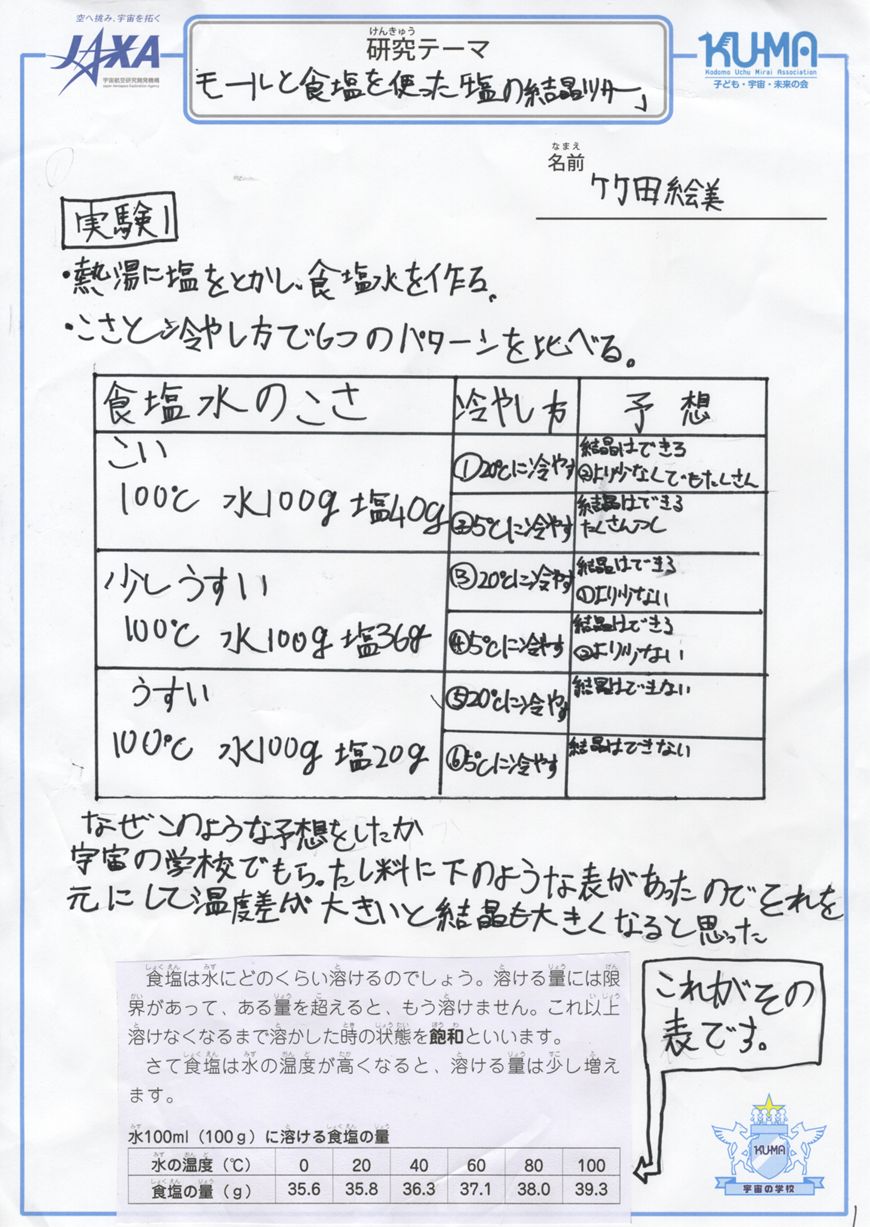 空へ挑み、宇宙を拓く
JAXA
宇宙航空研究開発機構
Japan Aerospace Exploration Agency
けんきゅう
研究テーマ
モールと食塩を使った「塩の結晶ツリー」
KU-MA
Kodomo Uchu Mirai Association
子ども・宇宙・未来の会
なまえ
名前
竹田絵美
実験1
・熱湯に塩をとかし、食塩水を作る。
・こさと冷やし方で6つのパターンを比べる。
食塩水のこさ 冷やし方 予想
こい
100℃ 水100g 塩40g
①20℃に冷やす
結晶はできる
②より少なくてもたくさん
②5℃に冷やす
結晶はできる
たくさんつく
少しうすい
100℃ 水100g 塩36g
③20℃に冷やす
結晶はできる
①より少ない
④5℃に冷やす
結晶はできる
②より少ない
うすい
100℃ 水100g 塩20g
⑤20℃に冷やす
結晶はできない
⑥5℃に冷やす
結晶はできない
なぜこのような予想をしたか
宇宙の学校でもらったし料に下のような表があったのでそれを
元にして温度差が大きいと結晶も大きくなると思った
食塩は水にどのくらい溶けるのでしょう。溶ける量には限
界があって、ある量を超えると、もう溶けません。これ以上
溶けなくなるまで溶かした時の状態を飽和といいます。
さて食塩は水の温度が高くなると、溶ける量は少し増え
ます。
水100ml（100g）に溶ける食塩の量
水の温度（℃） 0 20 40 60 80 100
食塩の量（g） 35.6 35.8 36.3 37.1 38.0 39.3
これがその
表です。
KU-MA
宇宙の学校
1